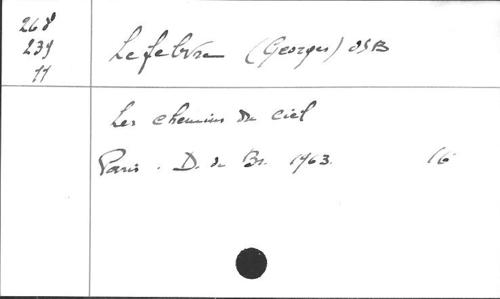 268
239
11
Lefebvre (Georges) OSB
Les chemins du ciel
Paris. D. de Br. 1963. 16